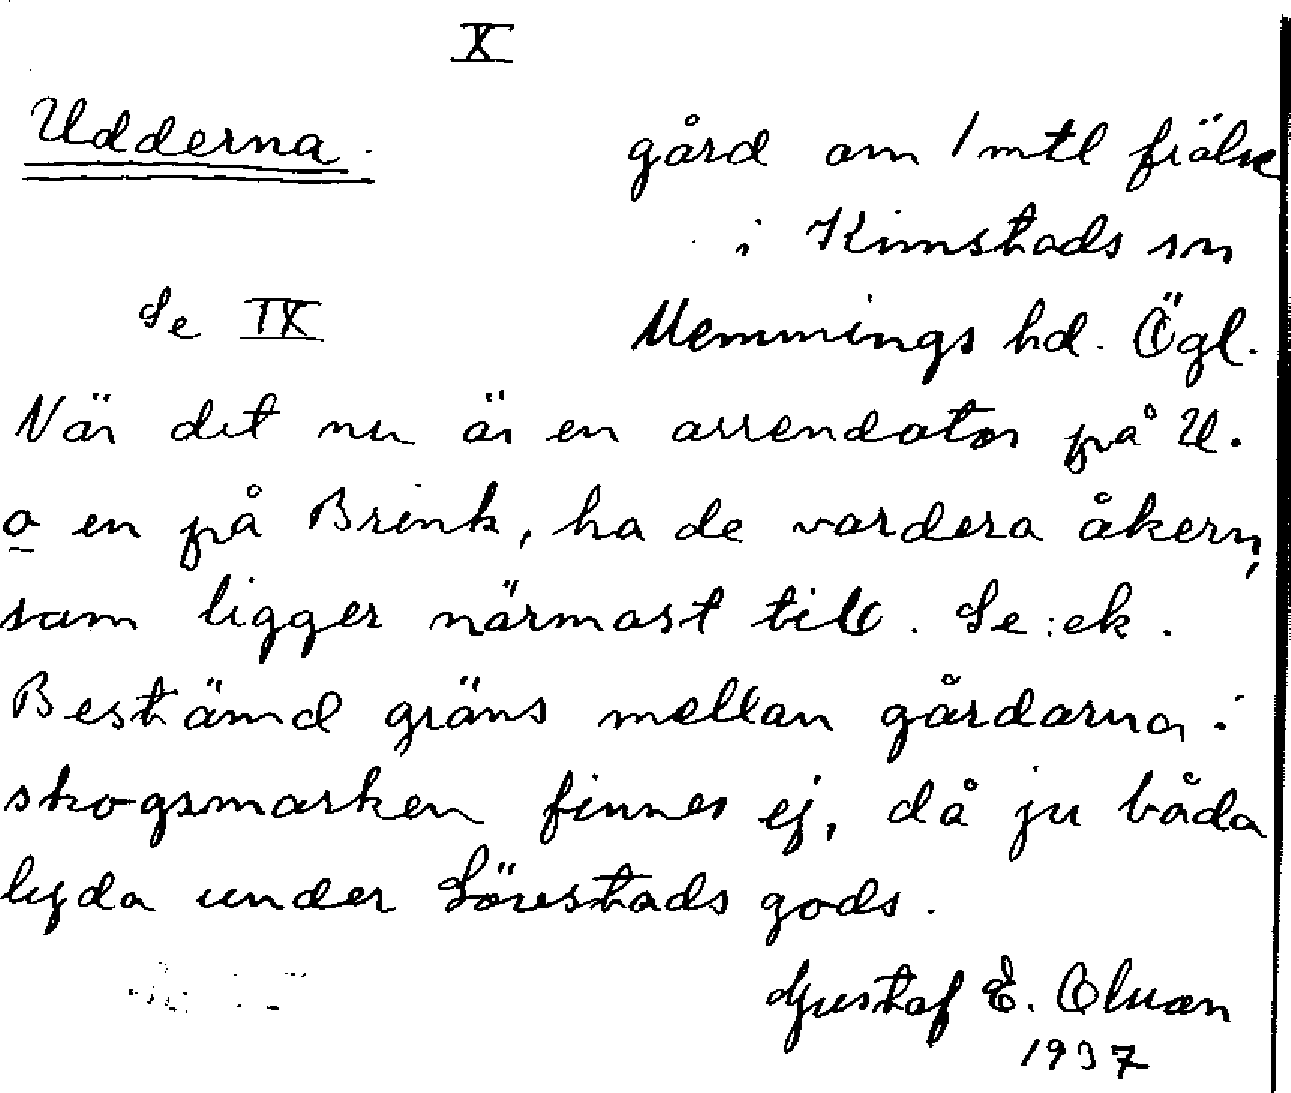 X
Udderna. gård om 1 mtl frälse
i Kimstads sn
Se IX Memmings hd. Ögl.
När det nu är en arrendator på U.
o en på Brink, ha de vardera åkern,
som ligger närmast till. Se: ek.
Bestämd gräns mellan gårdarna i
skogsmarken finnes ej, då ju båda
lyda under Lörestads gods.
Gustaf E. Olson
1937